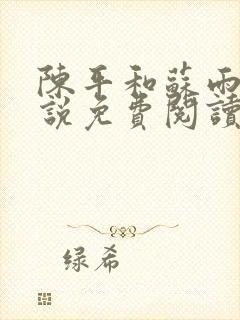 陳平和蘇雨
說免費閱讀
绿希